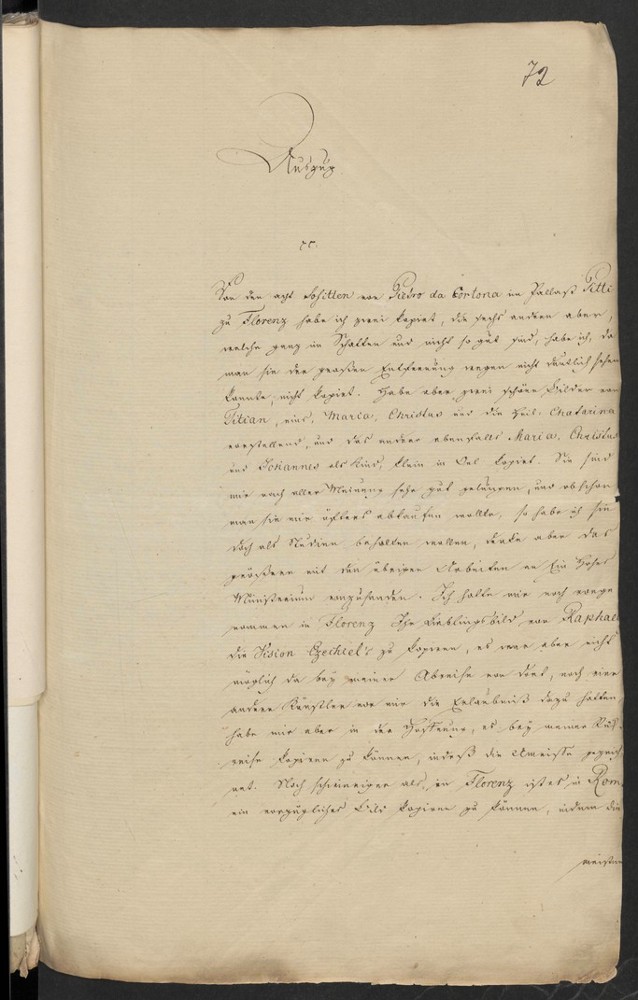 72
Auszug
cc.
Von den acht Sofitten von Pietro da Cortona im Pallast Pitti
zu Florenz habe ich zwei kopirt, die sechs andern aber,
welche ganz im Schatten und nicht so gut sind, habe ich, da
man sie der großen Entfernung wegen nicht deutlich sehen
konnte, nicht kopirt. Habe aber zwei schöne Bilder von
Titian, eins, Maria, Christus und die heil: Chatarina
vorstellend, und das andere ebenfalls Maria, Christus
und Johannes als Kind, klein in Oel kopirt. Sie sind
mir nach aller Meinung sehr gut gelungen, und obschon
man sie mir öfters abkaufen wollte, so habe ich sie
doch als Studium behalten wollen, denke aber das
größere mit den übrigen Arbeiten an Ein Hohes
Ministerium einzusenden. Ich hatte mir noch vorge
nommen in Florenz Ihr Lieblingsbild von Raphael
die Vision Ezechiel's zu kopiren, es war aber nicht
möglich da bey meiner Abreise von dort, noch vier
andere Künstler vor mir die Erlaubniß dazu hatten,
habe mir aber in der Hoffnung, es bey meiner Rük-
reise kopiren zu können, indeß die Umrisse gezeich
net. Noch schwieriger als in Florenz ist es in Rom
ein vorzügliches Bild kopiren zu können, indem die
meisten